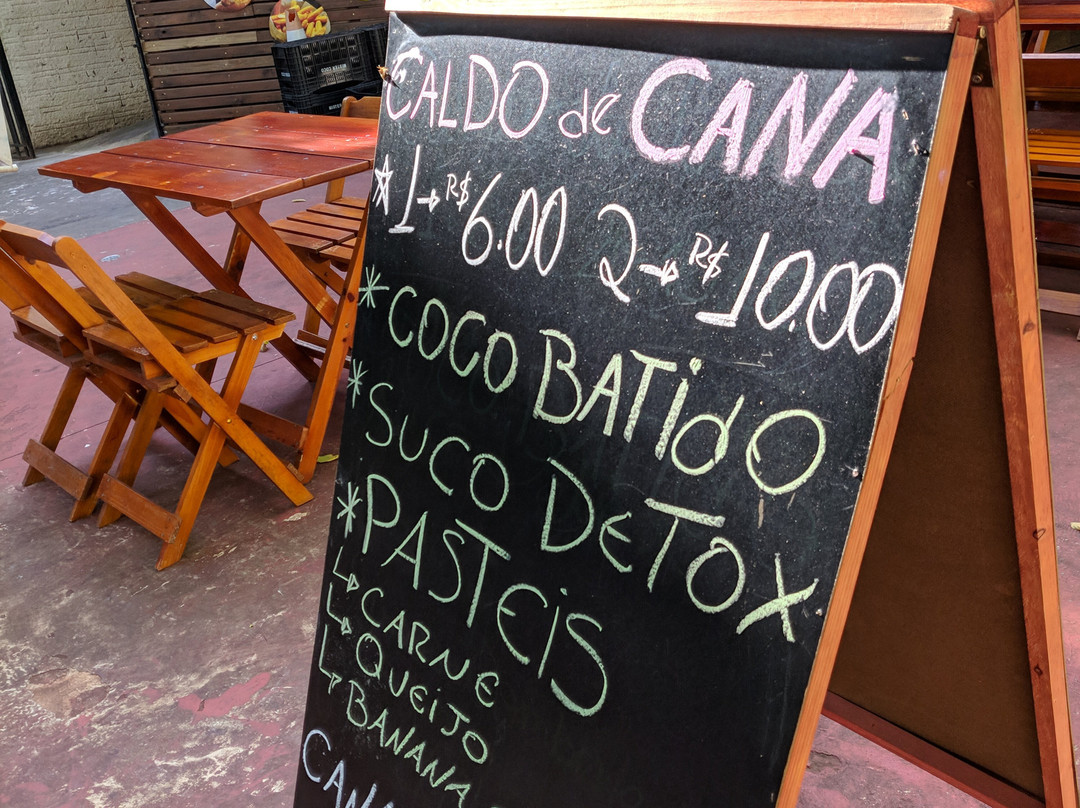 CALDO de CANA
* 1→ R$ 6.00 2→ R$ 10.00
* COCO BATIDO
* SUCO DETOX
* PASTEIS
↳ CARNE
↳ QUEIJO
↳ BANANA